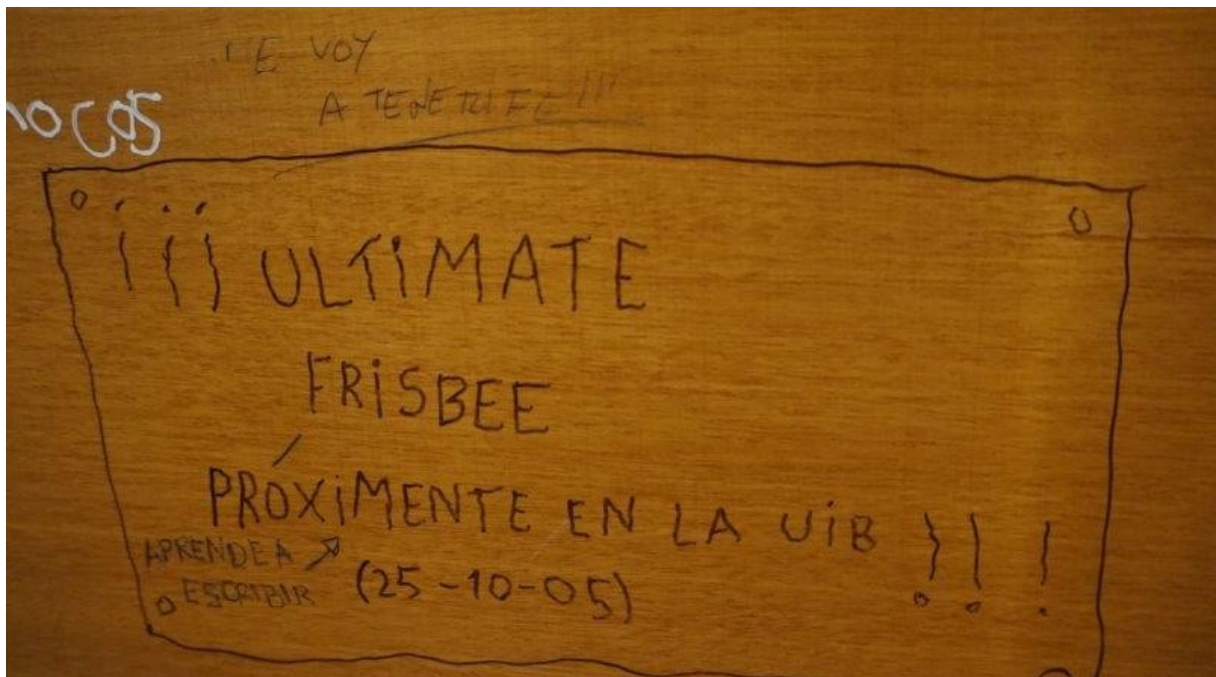 VOY
A TENERIFE!!!
¡¡¡ ULTIMATE
FRISBEE
PRÓXIMENTE EN LA UIB !!!
APRENDE A
ESCRIBIR
(25-10-05)